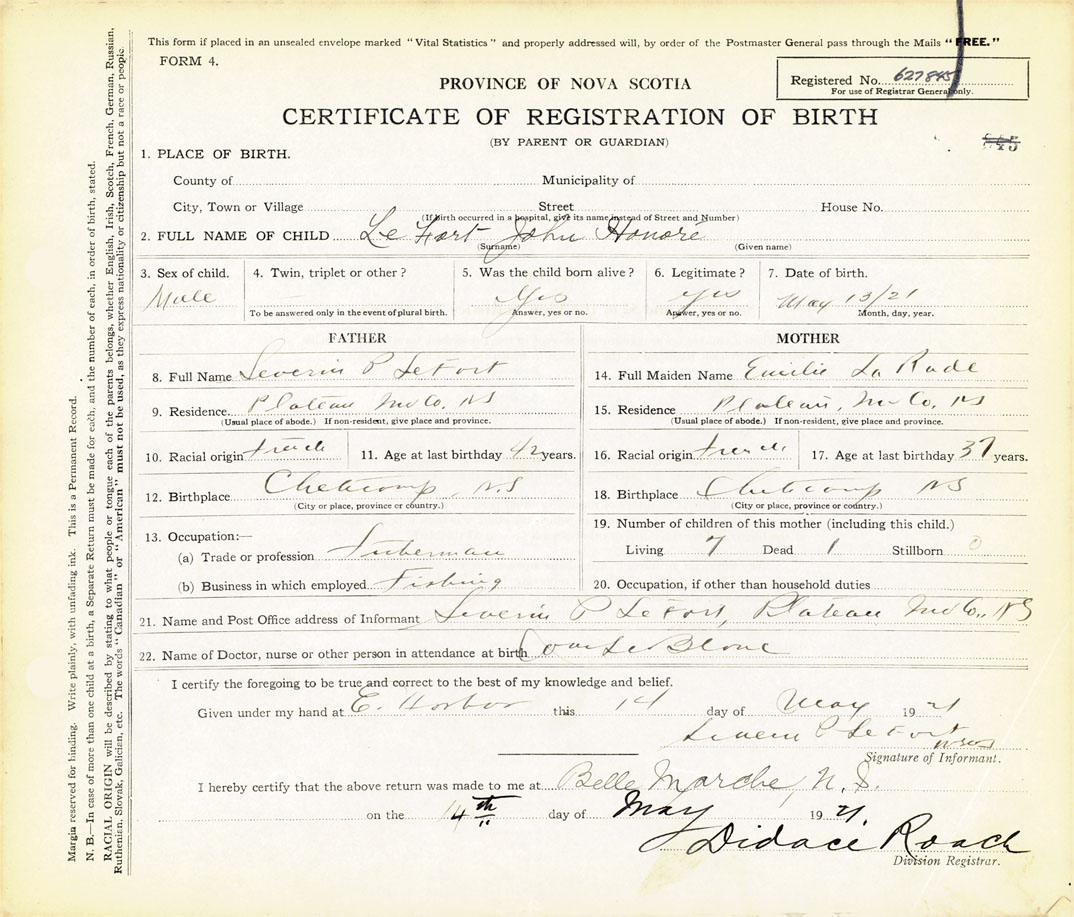 This form if placed in an unsealed envelope marked "Vital Statistics" and properly addressed will, by order of the Postmaster General pass through the Mails "FREE."
FORM 4.
PROVINCE OF NOVA SCOTIA
Registered No. 627845
For use of Registrar General only.
CERTIFICATE OF REGISTRATION OF BIRTH
(BY PARENT OR GUARDIAN)
1. PLACE OF BIRTH.
County of Municipality of
City, Town or Village Street House No.
(If birth occurred in a hospital, give its name instead of Street and Number)
2. FULL NAME OF CHILD Le Fort John Honore
(Surname) (Given name)
3. Sex of child. 4. Twin, triplet or other? 5. Was the child born alive? 6. Legitimate? 7. Date of birth.
Male Yes yes May 13/21
To be answered only in the event of plural birth. Answer, yes or no. Answer, yes or no. Month, day, year.
FATHER
8. Full Name Severin P LeFort
9. Residence Plateau Inv Co. NS
(Usual place of abode.) If non-resident, give place and province.
10. Racial origin french 11. Age at last birthday 42 years.
12. Birthplace Cheticamp, N.S
(City or place, province or country.)
13. Occupation:—
(a) Trade or profession Fisherman
(b) Business in which employed Fishing
MOTHER
14. Full Maiden Name Emilie La Rade
15. Residence Plateau, Inv Co. NS
(Usual place of abode.) If non-resident, give place and province.
16. Racial origin french 17. Age at last birthday 37 years.
18. Birthplace Cheticamp NS
(City or place, province or country.)
19. Number of children of this mother (including this child.)
Living 7 Dead 1 Stillborn 0
20. Occupation, if other than household duties
21. Name and Post Office address of Informant Severin P LeFort, Plateau Inv Co., NS
22. Name of Doctor, nurse or other person in attendance at birth Le Blanc
I certify the foregoing to be true and correct to the best of my knowledge and belief.
Given under my hand at E. Harbor this 14 day of May 1921
Severin P LeFort
Signature of Informant.
I hereby certify that the above return was made to me at Belle Marche, N.S.
on the 14th day of May 1921.
Didace Roach
Division Registrar.
Margin reserved for binding. Write plainly, with unfading ink. This is a Permanent Record.
N. B.—In case of more than one child at a birth, a Separate Return must be made for each, and the number of each, in order of birth, stated.
RACIAL ORIGIN will be described by stating to what people or tongue each of the parents belongs, whether English, Irish, Scotch, French, German, Russian,
Ruthenian, Slovak, Galician, etc. The words "Canadian" or "American" must not be used, as they express nationality or citizenship but not a race or people.